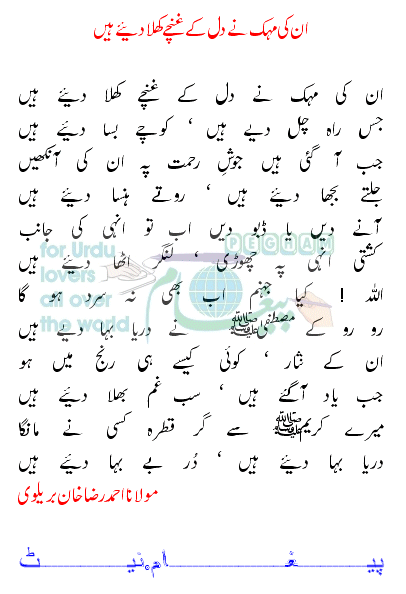 ان کی مہک نے دل کے غنچے کھلا دیئے ہیں
ان کی مہک نے دل کے غنچے کھلا دیئے ہیں
جس راہ چل دیے ہیں ‘ کوچے بسا دیئے ہیں
جب آ گئی ہیں جوشِ رحمت پہ ان کی آنکھیں
جلتے بجھا دیئے ہیں ‘ روتے ہنسا دیئے ہیں
آنے دیں یا ڈبو دیں اب تو انہی کی جانب
کشتی انہی پہ چھوڑی ‘ لنگر اٹھا دیئے ہیں
اللہ ! کیا جہنم اب بھی نہ سرد ہو گا
رو رو کے مصطفیٰ ﷺ نے دریا بہا دیے ہیں
ان کے نثار ‘ کوئی کیسے ہی رنج میں ہو
جب یاد آگئے ہیں ‘ سب غم بھلا دیئے ہیں
میرے کریم ﷺ سے گر قطرہ کسی نے مانگا
دریا بہا دیئے ہیں ‘ دُر بے بہا دیئے ہیں
مولانا احمد رضا خان بریلوی
PEGHAM
for Urdu
lovers
all over
the world
پیغام
پیغام.نیٹ